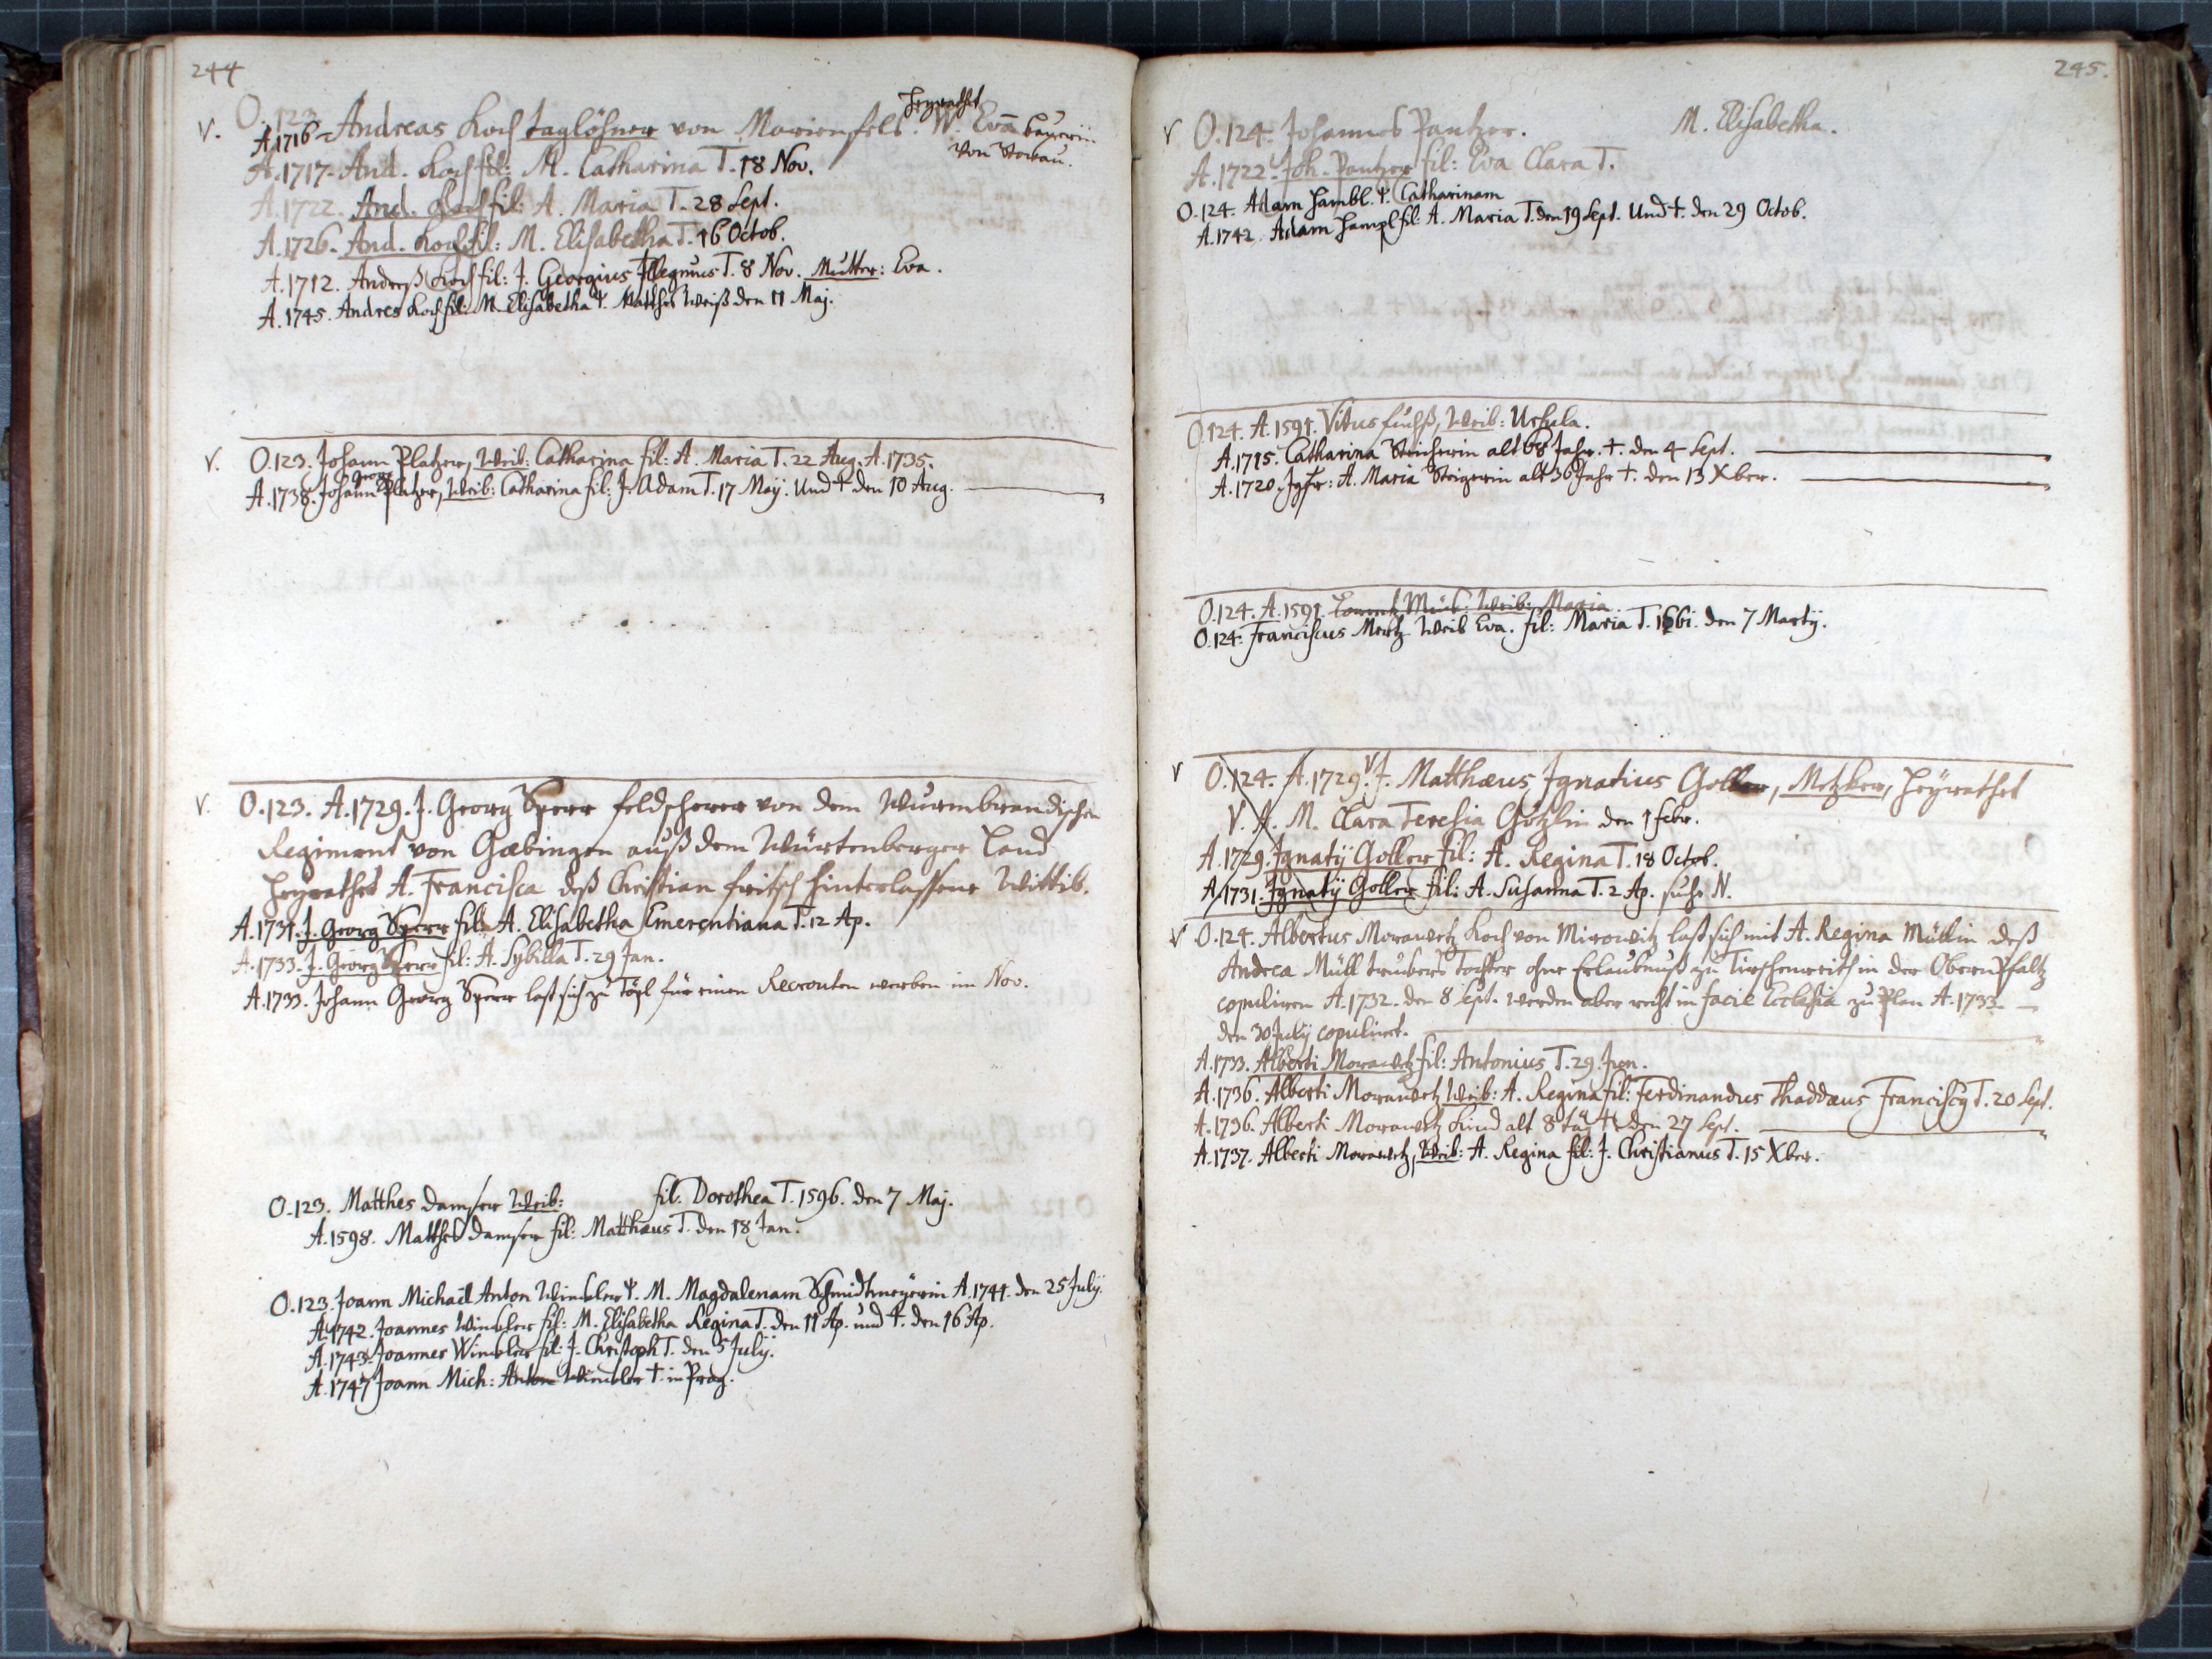 244
V. O.123.
heyrathet
A.1716 - Andreas Koch taglöhner von Marienfels. W. Eva Bayerin
von Stockau.
A.1717. And. Koch fil: M. Catharina T. 18 Nov.
A.1722. And. Koch fil: A. Maria T. 28 Sept.
A.1726. And. Koch fil: M. Elisabetha T. 16 Octob.
A.1712. Andreß Koch fil: J. Georgius T. 8 Nov. Mutter: Eva.
A.1745. Andres Koch fil: M. Elisabetha Ψ. Matthes Weiß den 11 Maj.
V. O.123. Johann Platzer, Weib: Catharina fil: A. Maria T. 22 Aug. A.1735.
Georg
A.1738. Johann Platzer, Weib: Catharina fil: J. Adam T. 17 Maÿ. Und † den 10 Aug.
V. O.123. A.1729. J. Georg Sperr feldscherer von dem Wurmbrandischen
Regiment von Gæbingen auß dem Würtenberger Land
heyrathet A. Francisca deß Christian fritsch hinterlassene Wittib.
A.1731. J. Georg Sperr fil: A. Elisabetha Emerentiana T. 12 Ap.
A.1733. J. Georg Sperr fil: A. Sybilla T. 29 Jan.
A.1733. Johann Georg Sperr last sich zu Töpl für einen Recrouten werben im Nov.
O.123. Matthes Damser Weib: fil: Dorothea T. 1596. den 7 Maj.
A.1598. Matthes Damser fil: Matthæus T. den 18 Jan.
O.123. Joann Michaël Anton Winkler Ψ. M. Magdalenam Schmidtmeÿerin A.1741. den 25 Julÿ.
A.1742. Joannes Winkler fil: M. Elisabetha Regina T. den 11 Ap. und †. den 16 Ap.
A.1743. Joannes Winkler fil: J. Christoph T. den 5 Julÿ.
A.1747 Joann Mich: Anton Winkler † in Prag.
245.
V O.124. Johannes Pantzer. M. Elisabetha.
A.1722. Joh. Pantzer fil: Eva Clara T.
O.124. Adam Hambl. Ψ. Catharinam
A.1742. Adam Hampl fil: A. Maria T. den 19 Sept. Und †. den 29 Octob.
O.124. A.1591. Vitus fuchß, Weib: Ursula.
A.1715. Catharina alt 68 Jahr. †. den 4 Sept.
A.1720. Jgfr: A. Maria Steigerin alt 36 Jahr †. den 13 Xber.
O.124. A.1591. Weib: Maria.
O.124. Franciscus Mertz Weib Eva. fil: Maria T. 1661. den 7 Martÿ.
V O.124. A.1729. J. Matthæus Ignatius Goller, Metzker, heÿrathet
V. A. M. Clara Teresia Götzlin den 1 febr.
A.1729. Ignatÿ Goller fil: A. Regina T. 18 Octob.
A.1731. Ignatÿ Goller fil: A. Susanna T. 2 Ap. suche N.
V O.124. Albertus Morawetz Koch von Mirowitz last sich mit A. Regina Müllin deß
Andrea Müll Tochter ohne Erlaubnuß zu Tirschenreith in der Obern Pfaltz
copuliren A.1732. den 8 Sept. werden aber recht in facie Ecclesiæ zu Plan A.1733.
den 30 Julÿ copulirt.
A.1733. Alberti Morawetz fil: Antonius T. 29 Jun.
A.1736. Alberti Morawetz Weib: A. Regina fil: Ferdinandus Thaddæus Franciscg T. 20 Sept.
A.1736. Alberti Morawetz Kind alt 8 täg †. den 27 Sept.
A.1737. Alberti Morawetz, Weib: A. Regina fil: J. Christianus T. 15 Xber.